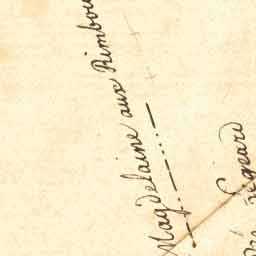 Magdelaine aux Rimbou
Legeard